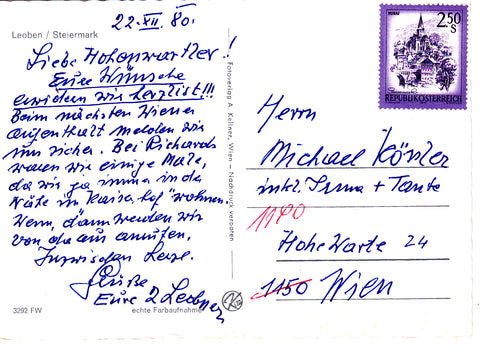 22.XII.80.
Leoben / Steiermark
Liebe Hohenwartler!
Eure Wünsche
erwidern wir herzlist!!!
Beim nächsten Wiener
aufenthalt melden wir
uns sicher. Bei Richards
waren wir einige Male,
da wir ja immer in der
Nähe im "Kaiserhof" wohnen.
Wenn, dann werden wir
von da aus anrufen.
Inzwischen
Grüße
Eure 2 Leobner
3292 FW
echte Farbaufnahme
Fotoverlag A. Kellner, Wien – Nachdruck verboten
MURAU
2.50
S
REPUBLIK ÖSTERREICH
Herrn
Michael
inkl. Irma + Tante
1190
Hohe Warte 24
1150 Wien